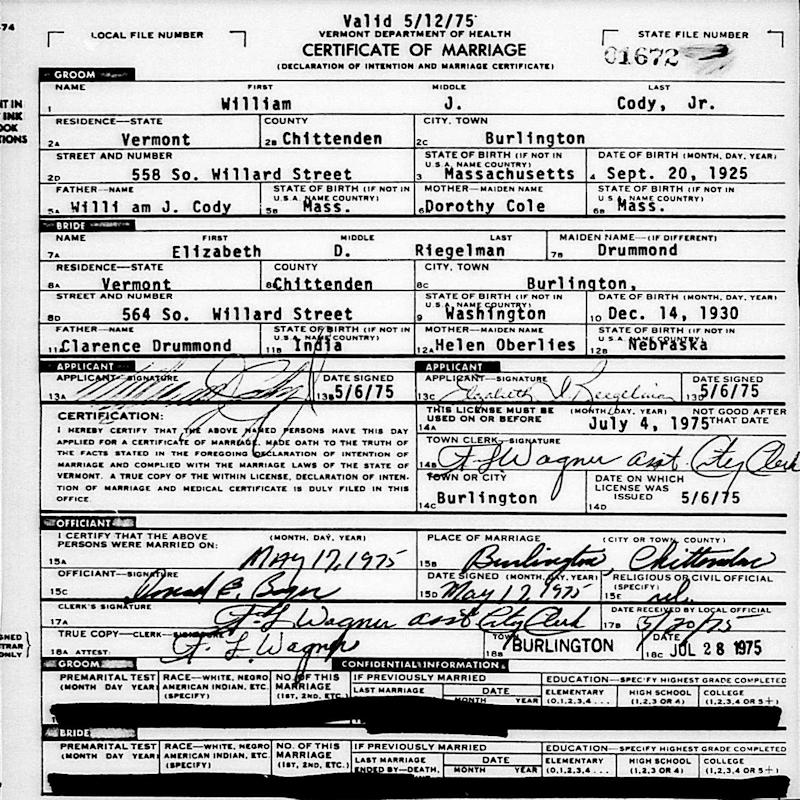 Valid 5/12/75
-74
LOCAL FILE NUMBER
VERMONT DEPARTMENT OF HEALTH
STATE FILE NUMBER
CERTIFICATE OF MARRIAGE
01672
(DECLARATION OF INTENTION AND MARRIAGE CERTIFICATE)
GROOM
NAME FIRST MIDDLE LAST
1 William J. Cody, Jr.
RESIDENCE—STATE COUNTY CITY, TOWN
2A Vermont 2B Chittenden 2C Burlington
STREET AND NUMBER STATE OF BIRTH (IF NOT IN U.S.A. NAME COUNTRY) DATE OF BIRTH (MONTH, DAY, YEAR)
2D 558 So. Willard Street 3 Massachusetts 4 Sept. 20, 1925
FATHER—NAME STATE OF BIRTH (IF NOT IN U.S.A. NAME COUNTRY) MOTHER—MAIDEN NAME STATE OF BIRTH (IF NOT IN U.S.A. NAME COUNTRY)
5A Willi am J. Cody 5B Mass. 6A Dorothy Cole 6B Mass.
BRIDE
NAME FIRST MIDDLE LAST MAIDEN NAME—(IF DIFFERENT)
7A Elizabeth D. Riegelman 7B Drummond
RESIDENCE—STATE COUNTY CITY, TOWN
8A Vermont 8B Chittenden 8C Burlington,
STREET AND NUMBER STATE OF BIRTH (IF NOT IN U.S.A. NAME COUNTRY) DATE OF BIRTH (MONTH, DAY, YEAR)
8D 564 So. Willard Street 9 Washington 10 Dec. 14, 1930
FATHER—NAME STATE OF BIRTH (IF NOT IN U.S.A. NAME COUNTRY) MOTHER—MAIDEN NAME STATE OF BIRTH (IF NOT IN U.S.A. NAME COUNTRY)
11A Clarence Drummond 11B India 12A Helen Oberlies 12B Nebraska
APPLICANT APPLICANT
APPLICANT—SIGNATURE DATE SIGNED APPLICANT—SIGNATURE DATE SIGNED
13A 13B 5/6/75 13C Elizabeth D. Riegelman 13D 5/6/75
CERTIFICATION:
I HEREBY CERTIFY THAT THE ABOVE NAMED PERSONS HAVE THIS DAY
APPLIED FOR A CERTIFICATE OF MARRIAGE, MADE OATH TO THE TRUTH OF
THE FACTS STATED IN THE FOREGOING DECLARATION OF INTENTION OF
MARRIAGE AND COMPLIED WITH THE MARRIAGE LAWS OF THE STATE OF
VERMONT. A TRUE COPY OF THE WITHIN LICENSE, DECLARATION OF INTEN-
TION OF MARRIAGE AND MEDICAL CERTIFICATE IS DULY FILED IN THIS
OFFICE.
THIS LICENSE MUST BE USED ON OR BEFORE (MONTH, DAY, YEAR) NOT GOOD AFTER THAT DATE
14A July 4, 1975
TOWN CLERK—SIGNATURE
14B F L Wagner asst. City Clerk
TOWN OR CITY DATE ON WHICH LICENSE WAS ISSUED
14C Burlington 14D 5/6/75
OFFICIANT
I CERTIFY THAT THE ABOVE PERSONS WERE MARRIED ON: (MONTH, DAY, YEAR) PLACE OF MARRIAGE (CITY OR TOWN, COUNTY)
15A MAY 17, 1975 15B Burlington, Chittenden
OFFICIANT—SIGNATURE DATE SIGNED (MONTH, DAY, YEAR) RELIGIOUS OR CIVIL OFFICIAL (SPECIFY)
15C 15D May 17, 1975 15E rel.
CLERK'S SIGNATURE DATE RECEIVED BY LOCAL OFFICIAL
17A F L Wagner asst City Clerk 17B 5/20/75
TRUE COPY—CLERK—SIGNATURE TOWN DATE
18A ATTEST: F. L. Wagner 18B BURLINGTON 18C JUL 28 1975
GROOM CONFIDENTIAL INFORMATION
PREMARITAL TEST (MONTH DAY YEAR) RACE—WHITE, NEGRO, AMERICAN INDIAN, ETC. (SPECIFY) NO. OF THIS MARRIAGE (1ST, 2ND, ETC.) IF PREVIOUSLY MARRIED LAST MARRIAGE DATE MONTH YEAR EDUCATION—SPECIFY HIGHEST GRADE COMPLETED ELEMENTARY (0,1,2,3,4 ... HIGH SCHOOL (1,2,3 OR 4) COLLEGE (1,2,3,4 OR 5+)
BRIDE
PREMARITAL TEST (MONTH DAY YEAR) RACE—WHITE, NEGRO AMERICAN INDIAN, ETC. (SPECIFY) NO. OF THIS MARRIAGE (1ST, 2ND, ETC.) IF PREVIOUSLY MARRIED LAST MARRIAGE ENDED BY—DEATH, DATE MONTH YEAR EDUCATION—SPECIFY HIGHEST GRADE COMPLETED ELEMENTARY (0,1,2,3,4 ... HIGH SCHOOL (1,2,3 OR 4) COLLEGE (1,2,3,4 OR 5+)